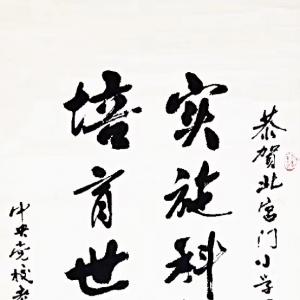 恭贺北宫门小学
实施科
培育世
中央党校老